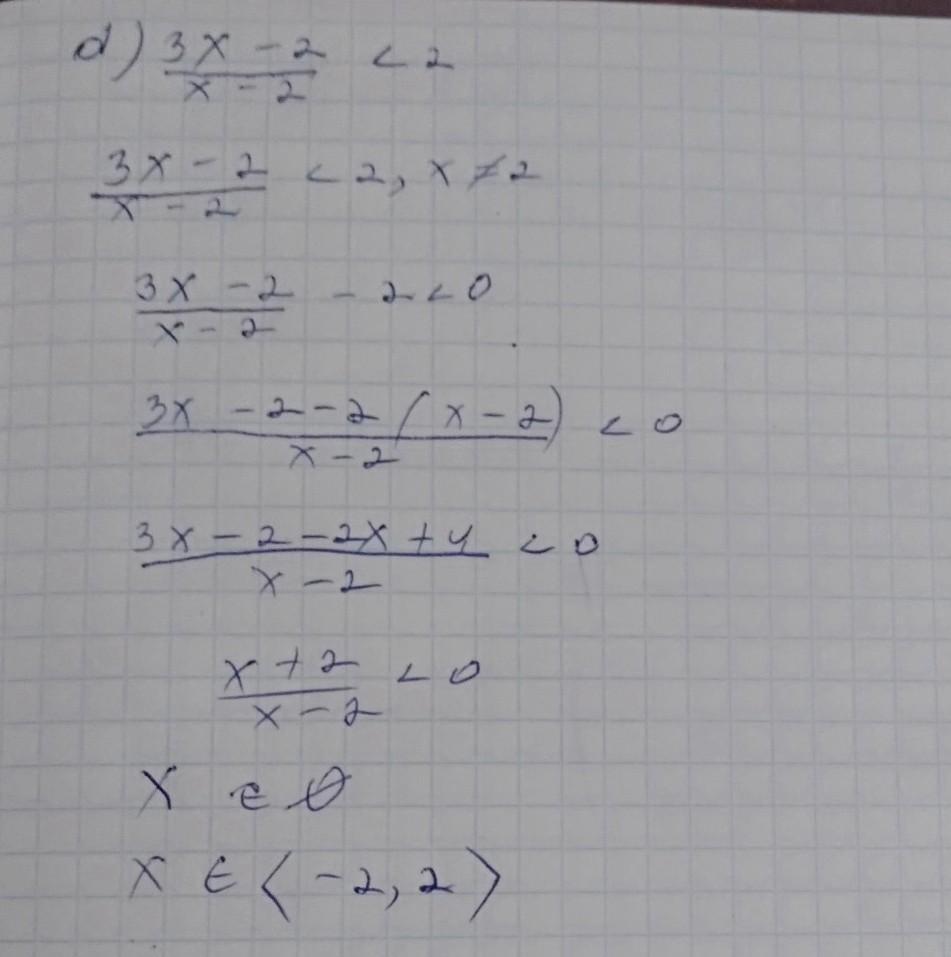 d) (3x - 2)/(x - 2) < 2
(3x - 2)/(x - 2) < 2, x ≠ 2
(3x - 2)/(x - 2) - 2 < 0
(3x - 2 - 2(x - 2))/(x - 2) < 0
(3x - 2 - 2x + 4)/(x - 2) < 0
(x + 2)/(x - 2) < 0
x ∈ ∅
x ∈ ⟨-2, 2⟩